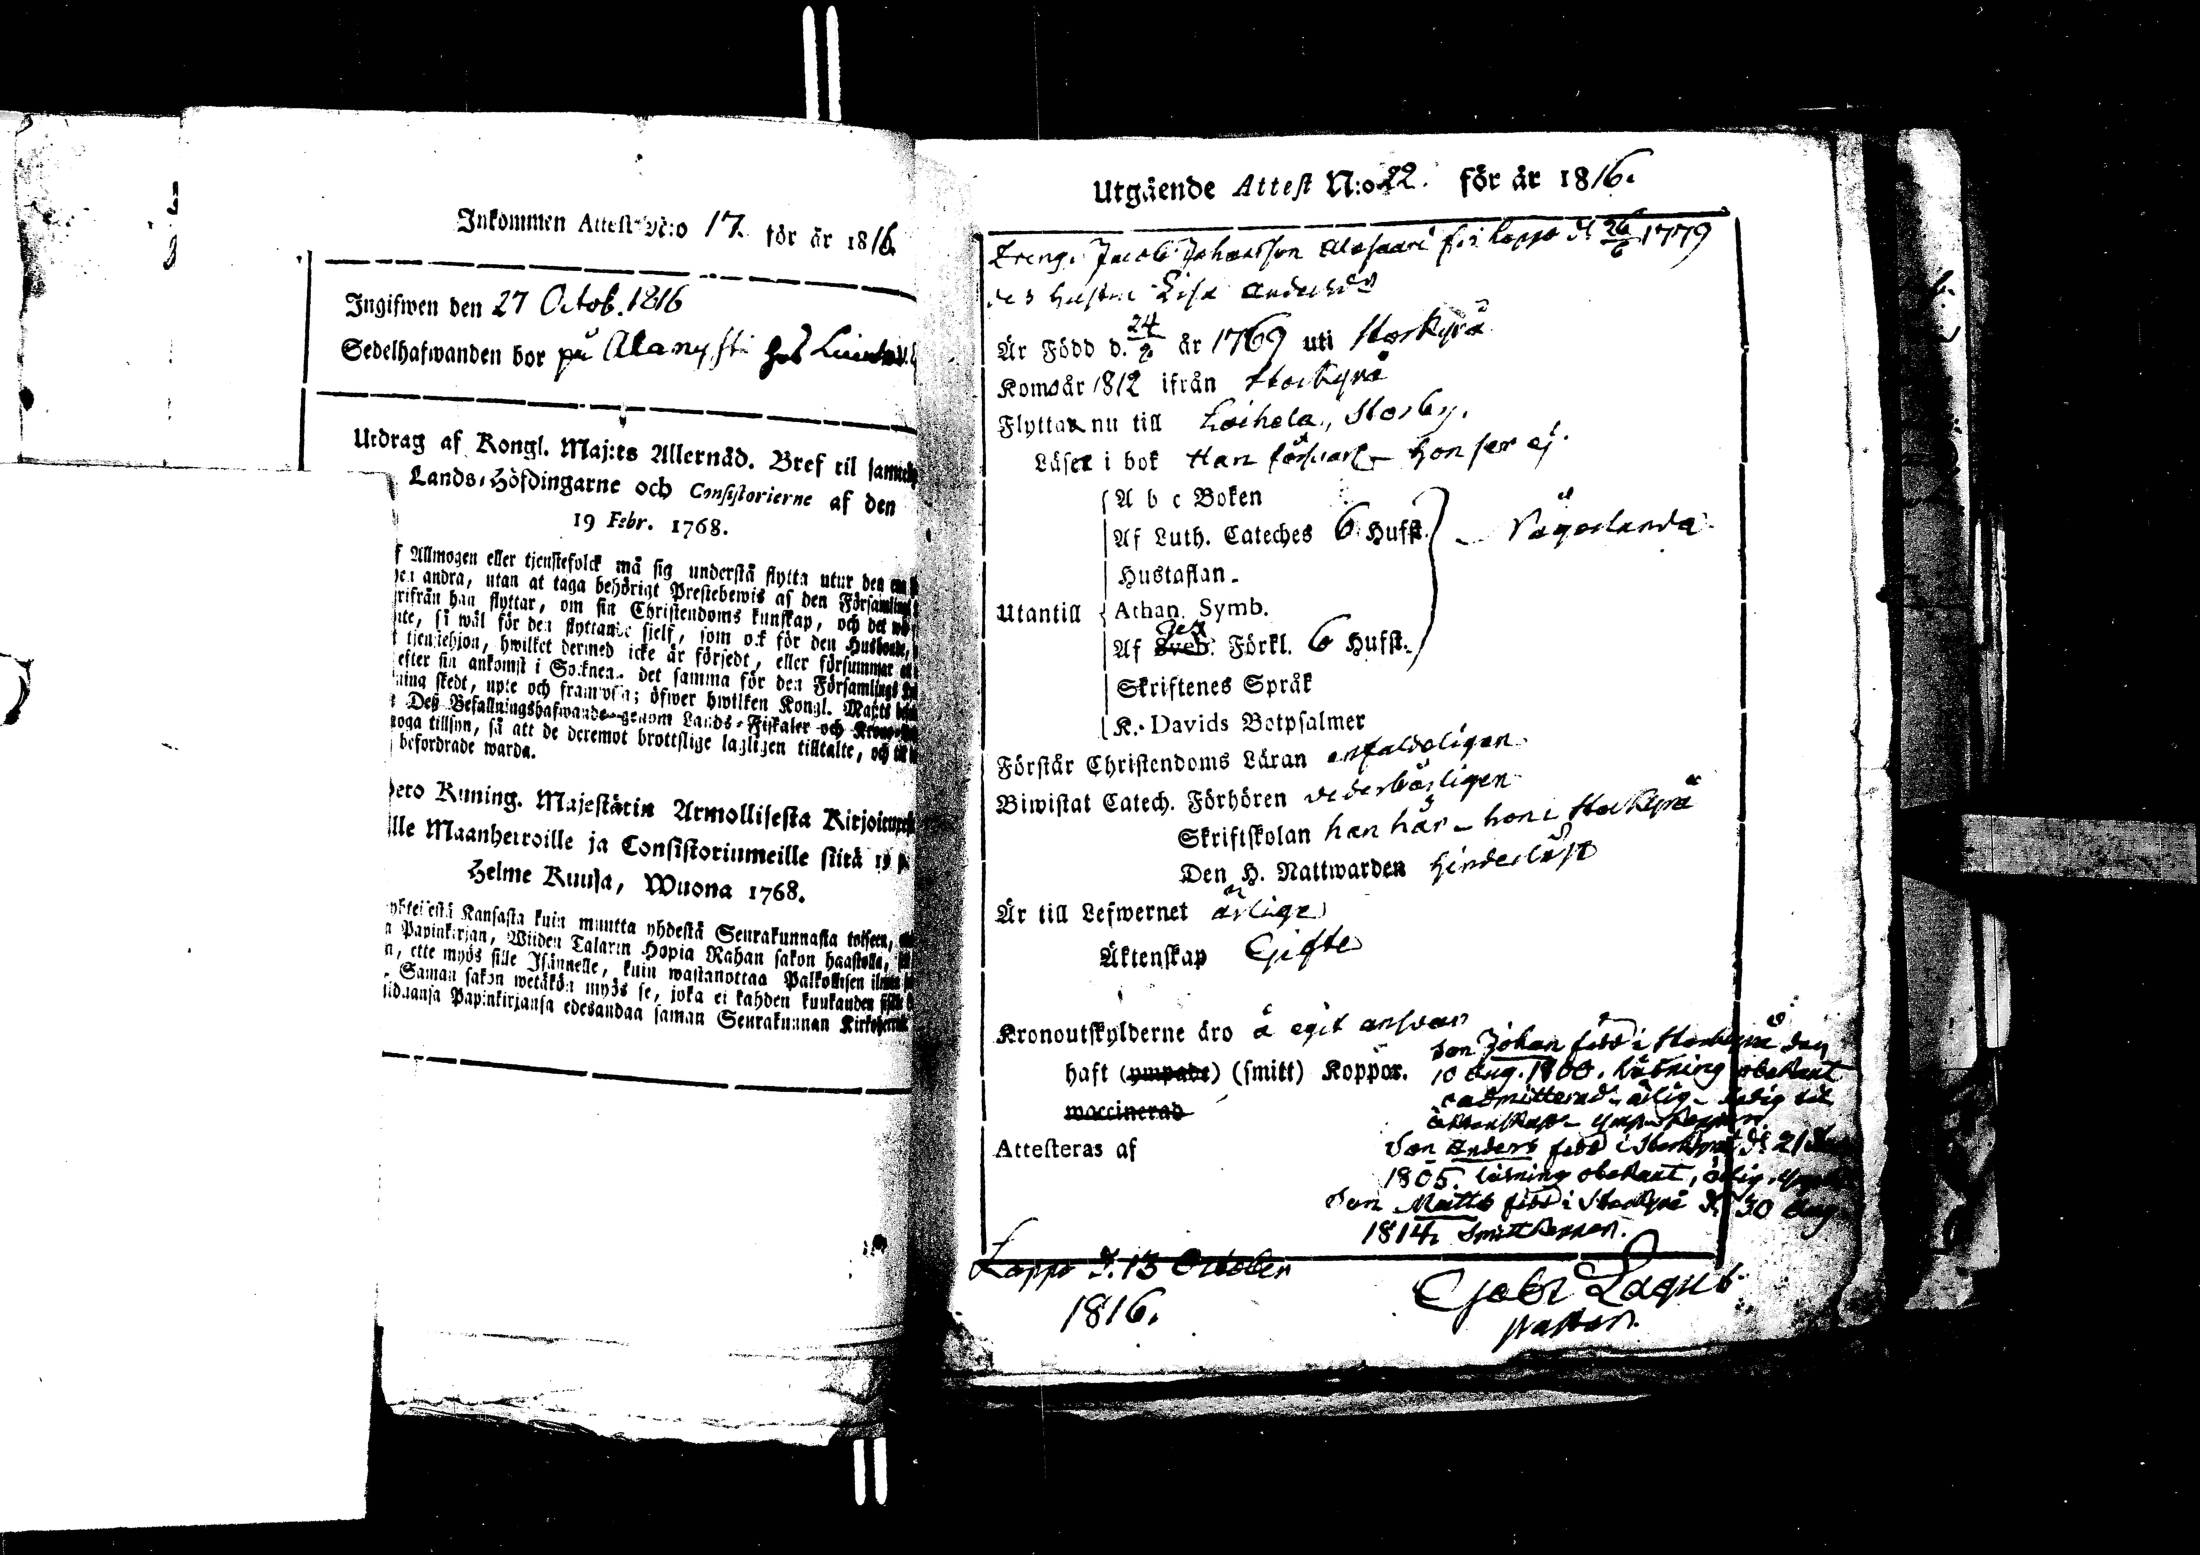 Inkommen Attest N:o 17. för år 1816.
Ingifwen den 27 Octob. 1816
Sedelhafwanden bor på Alanysti hos
Utdrag af Kongl. Maj:ts Allernåd. Bref til
Lands-Höfdingarne och Consistorierne af den
19 Febr. 1768.
f Allmogen eller tjenstefolck må sig understå flytta utur den
andra, utan at taga behörigt Prestebewis af den
rifrån han flyttar, om sin Christendoms kunskap, och det
så wäl för den flyttande sjelf, som ock för den
tjenstehjon, hwilket dermed icke är försedt, eller försummar
efter sin ankomst i Socknen, det samma för den Församlings
ning skedt, upte och framwisa; öfwer hwilken Kongl. Maj:ts
Deß Befallningshafwande genom Lands-Fiskaler och
noga tillsyn, så att de deremot brottslige lagligen tilltalte, och
befordrade warda.
Kuning. Majestätin Armollisesta
lle Maanherroille ja Consistoriumeille siitä 19
Helme Kuusa, Wuona 1768.
Kansasta kuin muutta yhdestä Seurakunnasta toiseen,
Papinkirjan, Wiiden Talarin Hopia Rahan sakon haastolla,
n, ette myös sille Isännelle, kuin wastanottaa Palkollisen
Saman sakon wetäkön myös se, joka ei kahden kuukauden
Papinkirjansa edesandaa saman Seurakunnan
Utgående Attest N:o 22. för år 1816.
Dreng. Jacob Johansson Alasaari född i Lappo d. 26/6 1779
des hustru Lisa Andersd:r
Är Född d. 24/2 år 1769 uti Storkyrå
Komo år 1812 ifrån Storkyrå
Flytta nu till Laihela, Storby.
Läser i bok Han försvarl. – Hon ser ej.
A b c Boken
Af Luth. Cateches 6 Hufst. – Någorlunda
Hustaflan
Utantill Athan. Symb.
Af Sveb. Förkl. 6 Hufst.
Skriftenes Språk
K. Davids Botpsalmer
Förstår Christendoms Läran enfaldeligen
Biwistat Catech. Förhören vederbörligen
Skriftskolan han här – hon i Storkyrå
Den H. Nattwarden hinderlöst
Är till Lefwernet ärlige
Äktenskap Gifte
Kronoutskylderne äro å eget answar
Son Johan född i Storkyrå den
haft (ympade) (smitt) Koppor. 10 Aug. 1800. läsning obekant
admitterad – ärlig – ledig til
waccinerad
äktenskap – ymp. koppor
Attesteras af
Son Anders född i Storkyrå d. 21
1805. läsning obekant, ärlig,
Son Matts född i Storkyrå d. 30 Aug.
1814. Smittkoppor.
Lappo d. 13 October
1816.
Gabr Lagus
Pastor.